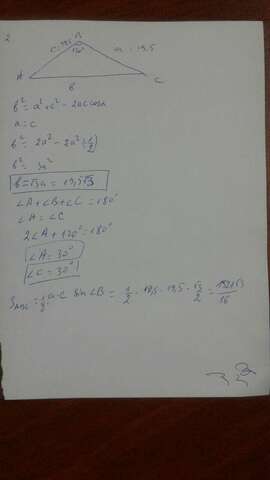 2
B
c=19,5 120° a=19,5
A b C
b² = a² + c² - 2ac cosα
a = c
b² = 2a² - 2a² (-1/2)
b² = 3a²
b = √3a = 19,5√3
∠A + ∠B + ∠C = 180°
∠A = ∠C
2∠A + 120° = 180°
∠A = 30°
∠C = 30°
S_ABC = 1/2 a·c sin∠B = 1/2 · 19,5 · 19,5 · √3/2 =